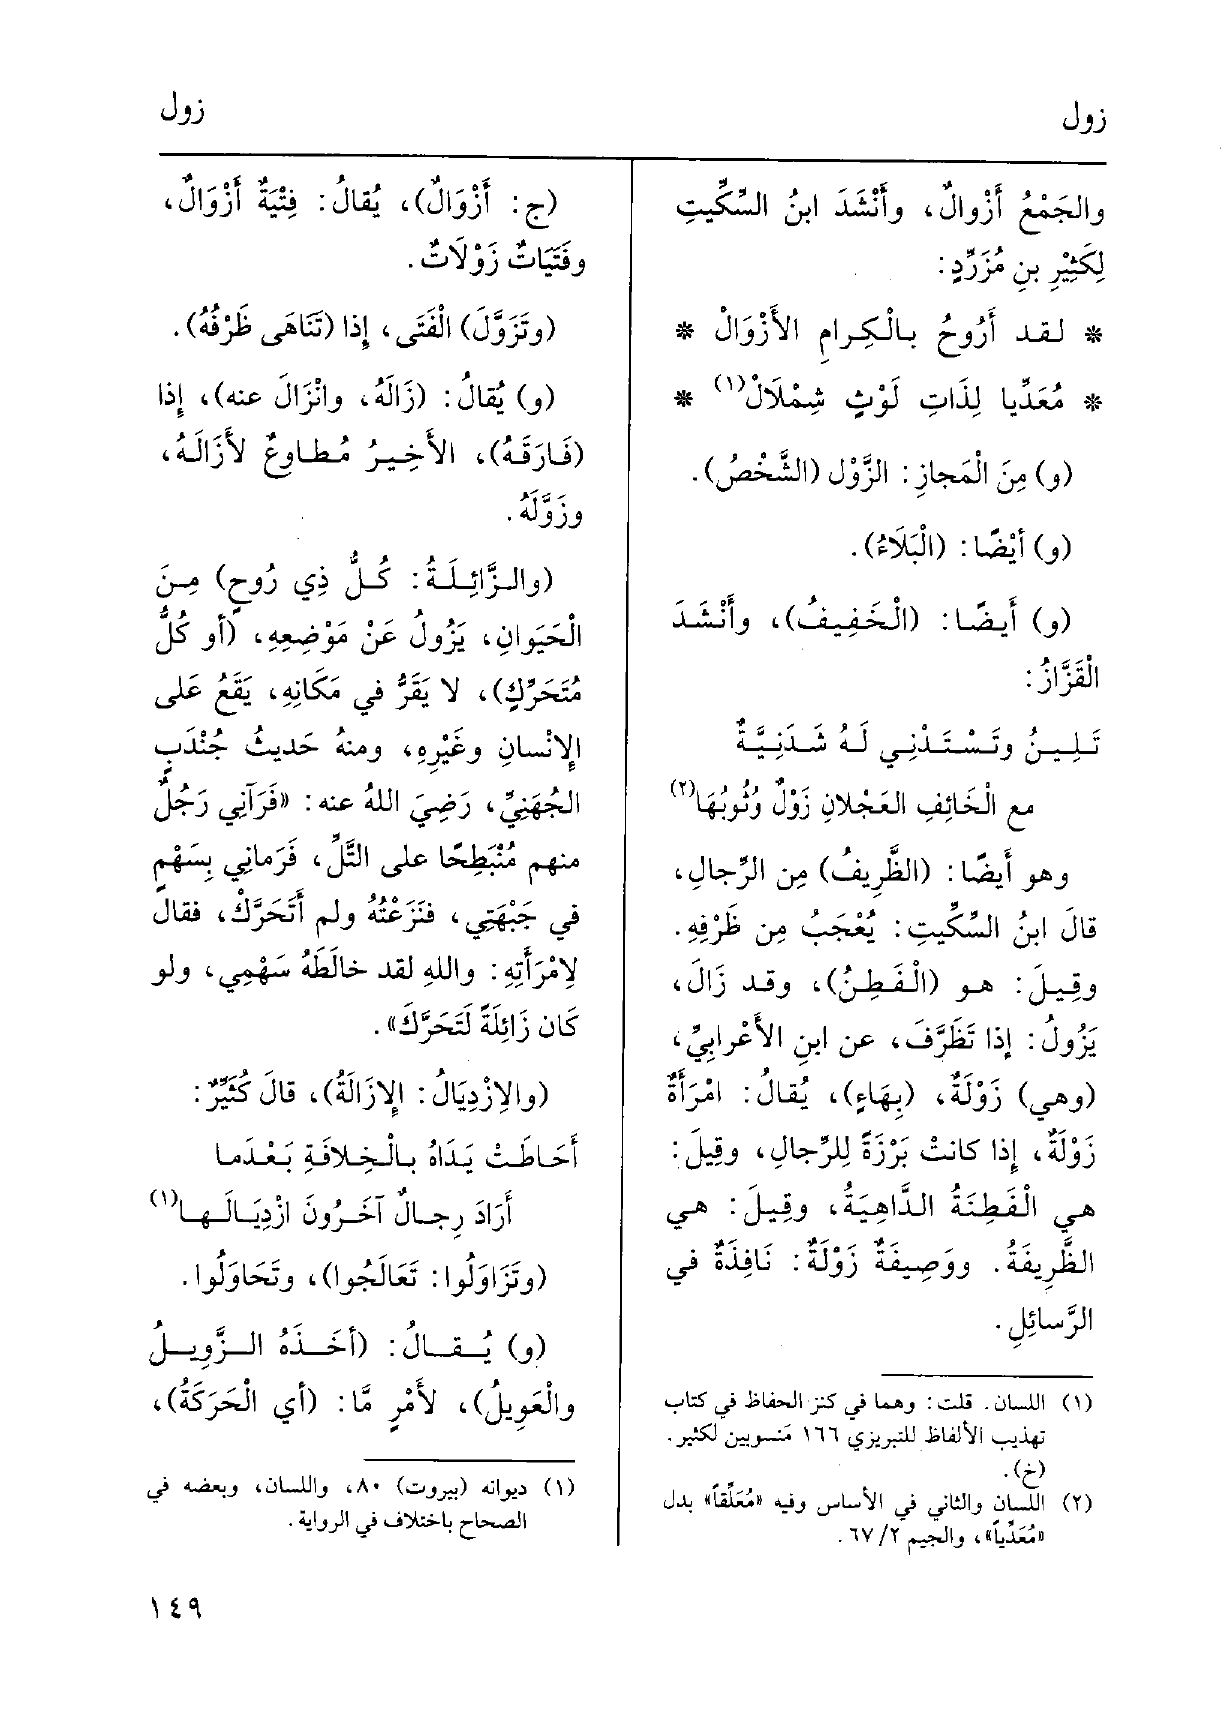 زول
زول
والجَمْعُ أَزْوالٌ، وأَنْشَدَ ابنُ السِّكِّيتِ
لِكَثِيْرِ بنِ مُزَرِّدٍ:
* لقد أَرُوحُ بالْكِرامِ الأَزْوَالْ *
* مُعَدِّيا لِذَاتِ لَوْثٍ شِمْلَالْ(١) *
(و) مِنَ الْمَجازِ: الزَّوْل (الشَّخْصُ).
(و) أَيْضًا: (الْبَلَاءُ).
(و) أَيضًا: (الْخَفِيفُ)، وأَنْشَدَ
الْقَزَّازُ:
تَلِينُ وتَسْتَدْنِي لَهُ شَدَنِيَّةٌ
مع الْخَائِفِ العَجْلانِ زَوْلٌ وُثُوبُهَا(٢)
وهو أَيضًا: (الظَّرِيفُ) مِن الرِّجالِ،
قالَ ابنُ السِّكِّيتِ: يُعْجَبُ مِن ظَرْفِهِ.
وقِيلَ: هو (الْفَطِنُ)، وقد زَالَ،
يَزُولُ: إذا تَظَرَّفَ، عن ابنِ الأَعْرابِيِّ،
(وهي) زَوْلَةٌ، (بِهَاءٍ)، يُقالُ: امْرَأَةٌ
زَوْلَةٌ، إذا كانتْ بَرْزَةً لِلرِّجالِ، وقِيلَ:
هي الْفَطِنَةُ الدَّاهِيَةُ، وقِيلَ: هي
الظَّرِيفَةُ. ووَصِيفَةٌ زَوْلَةٌ: نَافِذَةٌ في
الرَّسائِلِ.
(١) اللسان. قلت: وهما في كنز الحفاظ في كتاب
تهذيب الألفاظ للتبريزي ١٦٦ مَنسوبين لكثير.
(خ).
(٢) اللسان والثاني في الأساس وفيه «مُعَلِّقاً» بدل
«مُعَدِّياً»، والجيم ٦٧/٢.
(ج: أَزْوَالٌ)، يُقالُ: فِتْيَةٌ أَزْوَالٌ،
وفَتَيَاتٌ زَوْلَاتٌ.
(وتَزَوَّلَ) الْفَتَى، إذا (تَنَاهَى ظَرْفُهُ).
(و) يُقالُ: (زَالَهُ، وانْزَالَ عنه)، إذا
(فَارَقَهُ)، الأَخِيرُ مُطاوِعٌ لأَزَالَهُ،
وزَوَّلَهُ.
(والزَّائِلَةُ: كُلُّ ذِي رُوحٍ) مِنَ
الْحَيَوانِ، يَزُولُ عَنْ مَوْضِعِهِ، (أو كُلُّ
مُتَحَرِّكٍ)، لا يَقَرُّ في مَكَانِهِ، يَقَعُ عَلى
الإِنْسانِ وغَيْرِهِ، ومنهُ حَديثُ جُنْدَبٍ
الجُهَنِيِّ، رَضِيَ اللهُ عنه: «فَرَآنِي رَجُلٌ
منهم مُنْبَطِحًا على التَّلِّ، فَرَمانِي بِسَهْمٍ
في جَبْهَتِي، فنَزَعْتُهُ ولم أَتَحَرَّكْ، فقالَ
لِامْرَأَتِهِ: واللهِ لقد خالَطَهُ سَهْمِي، ولو
كَان زَائِلَةً لَتَحَرَّكَ».
(والِازْدِيَالُ: الإِزَالَةُ)، قالَ كُثَيِّرٌ:
أَحَاطَتْ يَدَاهُ بالْخِلافَةِ بَعْدَما
أَرَادَ رِجالٌ آخَرُونَ ازْدِيَالَها(١)
(وتَزَاوَلُوا: تَعَالَجُوا)، وتَحَاوَلُوا.
(و) يُقالُ: (أَخَذَهُ الزَّوِيلُ
والْعَوِيلُ)، لأَمْرٍ مَّا: (أي الْحَرَكَةُ)،
(١) ديوانه (بيروت) ٨٠، واللسان، وبعضه في
الصحاح باختلاف في الرواية.
١٤٩